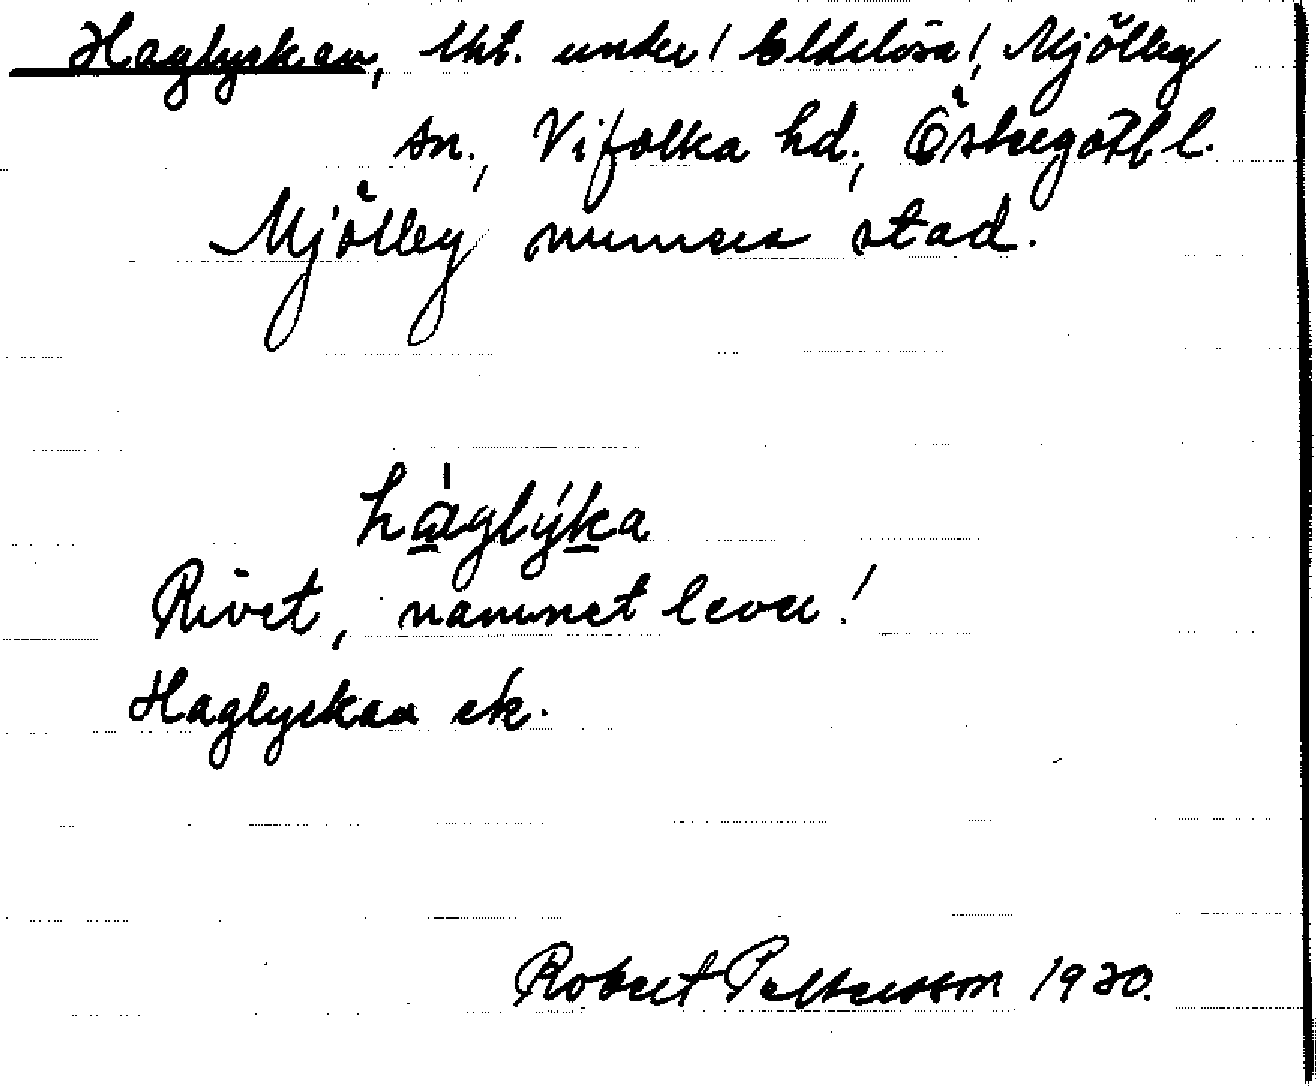 Haglyckan, lht. under! Eldslösa!, Mjölby
sn., Vifolka hd., Östergötl. l.
Mjölby numera stad.
hàglýka
Rivet, namnet lever!
Haglyckan ek.
Robert Pettersson 1930.